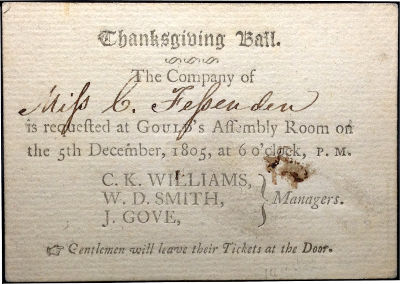 Thanksgiving Ball.
The Company of
Miſs C. Feſsenden
is requested at GOULD'S Aſsembly Room on
the 5th December, 1805, at 6 o'clock, P. M.
C. K. WILLIAMS,
W. D. SMITH,
J. GOVE,
Managers.
☞ Gentlemen will leave their Tickets at the Door.